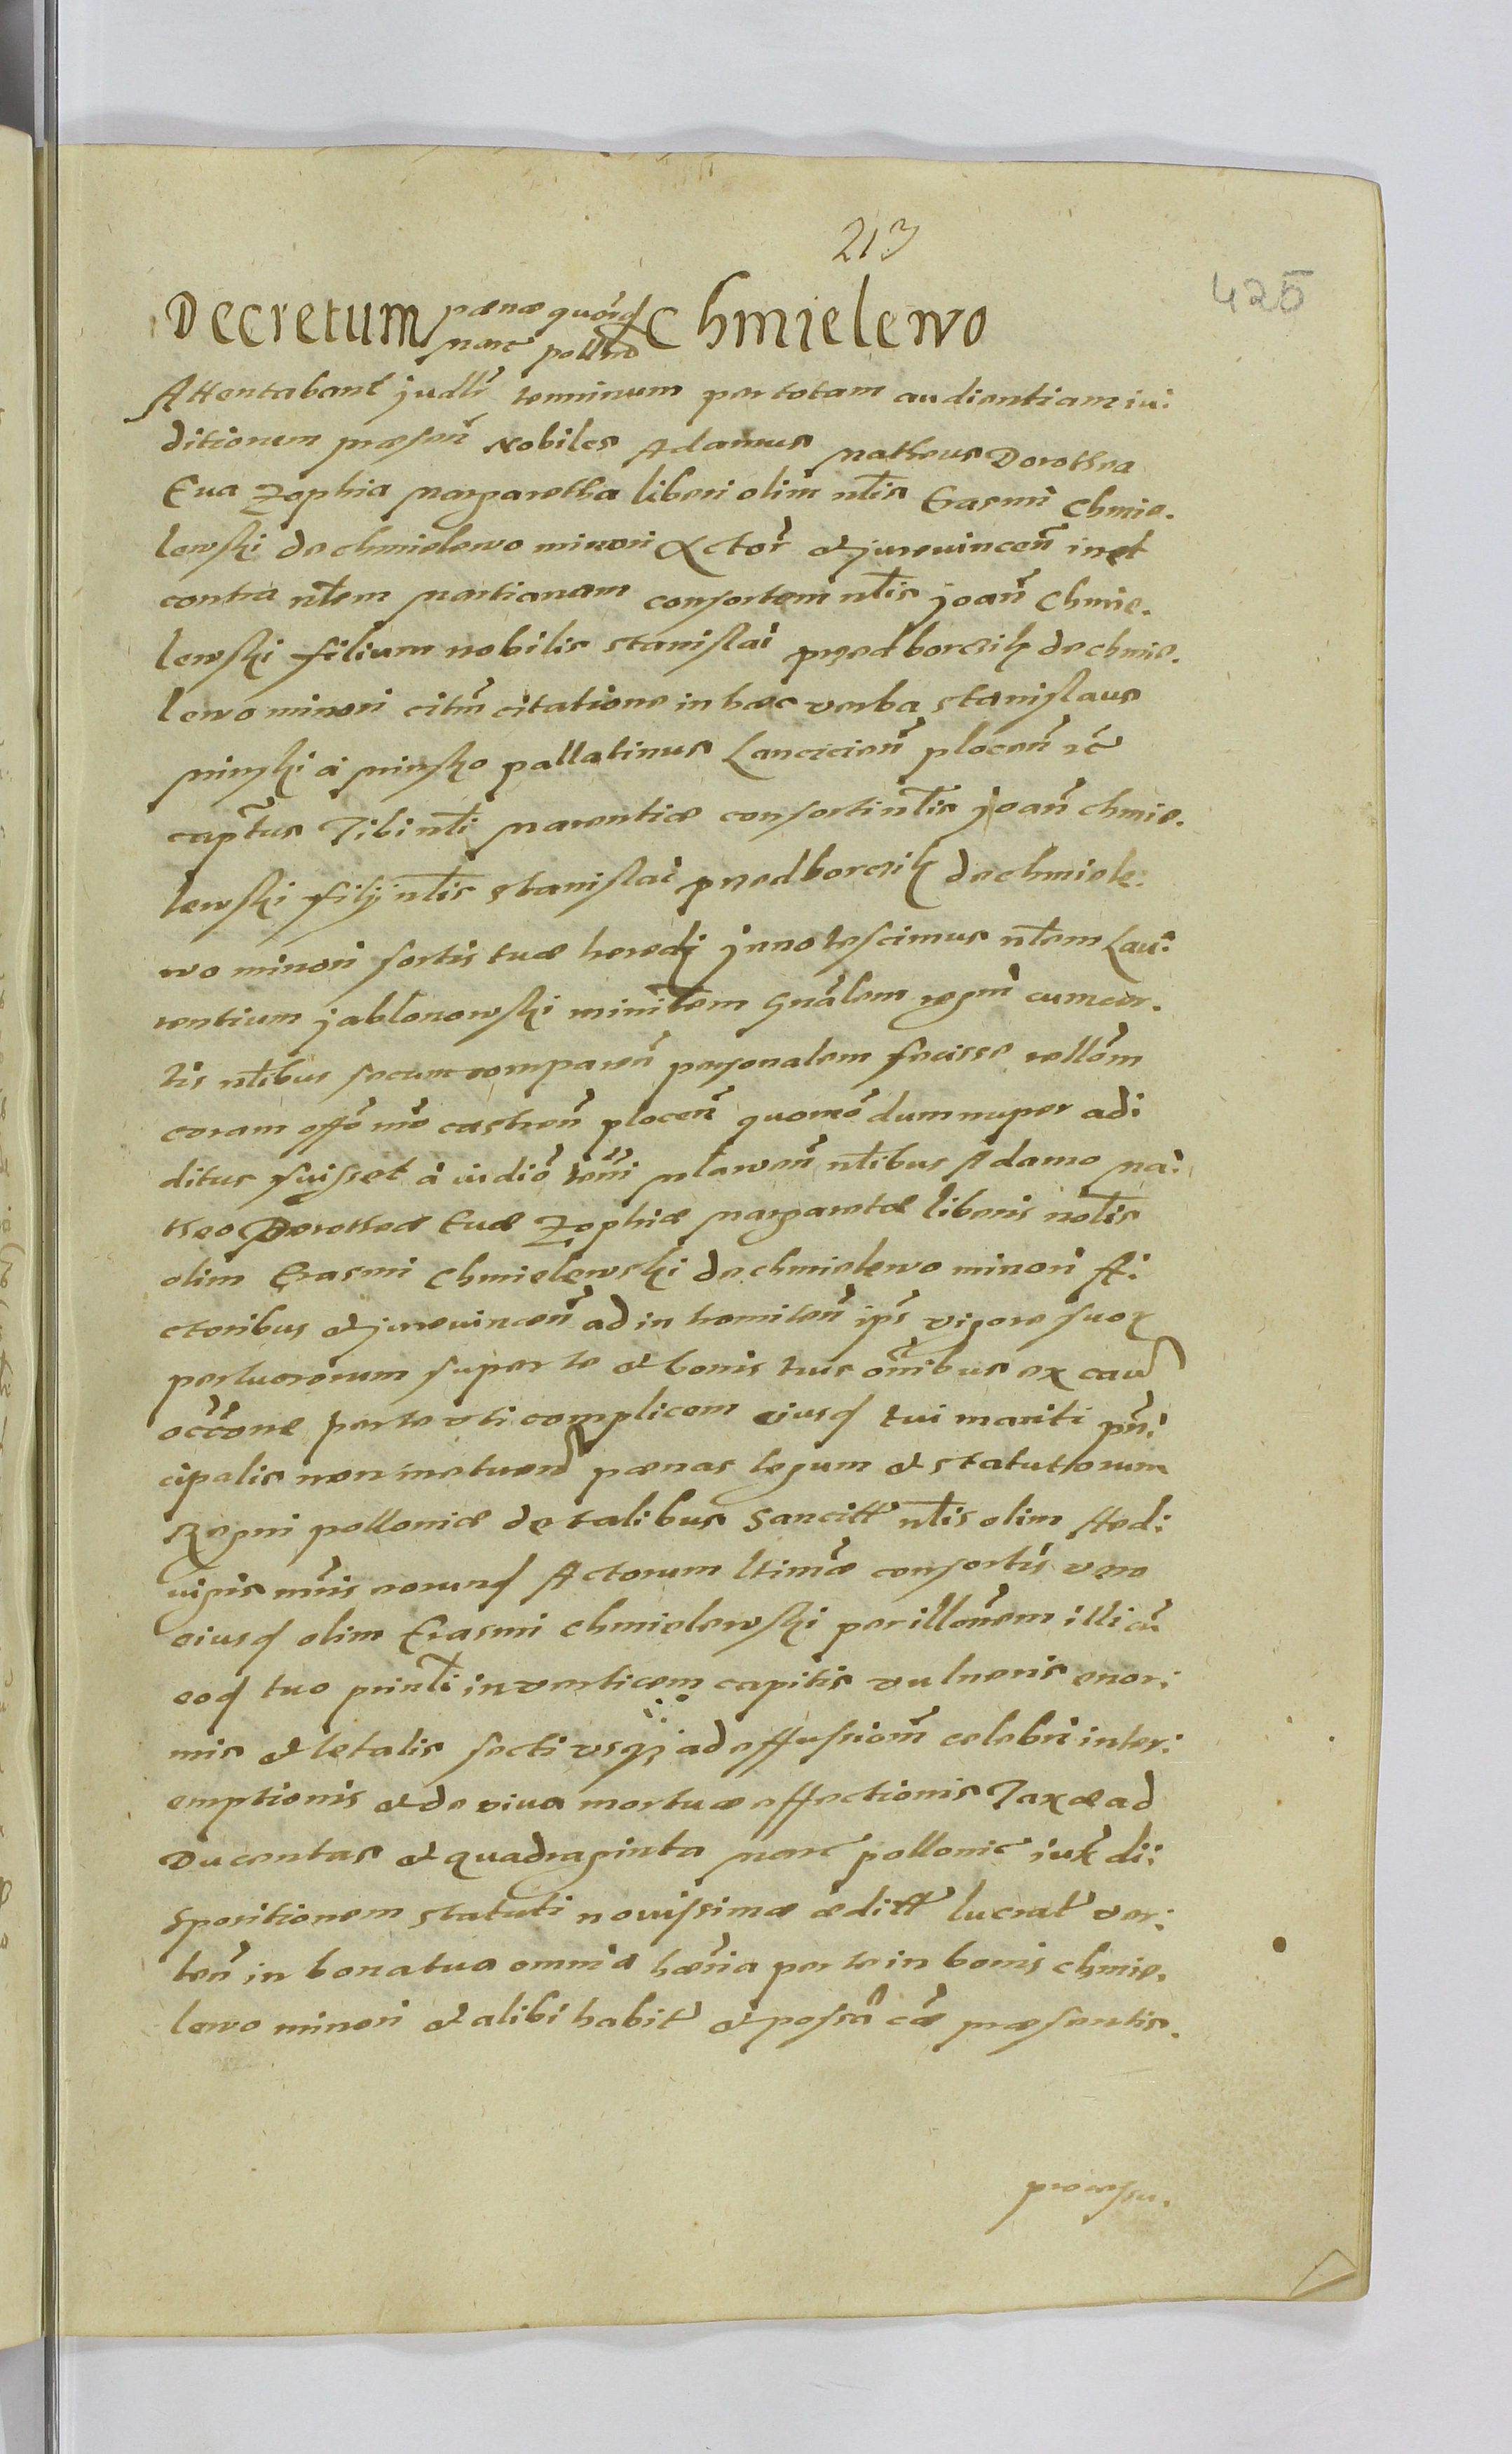 213
425
Decretum pœnæ quórq Chmielewo
marc pollno
Attentabant judlr terminum per totam audientiam iu:
ditionem præsen Nobiles Adamus Matheus Dorothea
Eua Zophia Margaretha liberi olim nlis Erasmi Chmie.
lewski de chmielewo minori Actor et jureuincen in et
contra nlem Martianam consortem nlis joan Chmie.
lewski filium nobilis Stanislai przedborczik de chmie.
lewo minori citm citatione in hæc verba Stanislaus
Minski à Minsko pallatinus Lancicien plocen etc
captus Tibi nli Marentiæ consorti nlis joan chmie.
lewski filij nlis Stanislai przedborczik de chmiele.
wo minori sortis tuæ heredj jnnotescimus nlem Lau:
rentium jablonowski minilem Gnalem regni cum cer.
tis nlibus secum comparen personalem fecisse rellom
coram offo mo castren plocen quomo dum nuper adi
ditus fuisset à iudio temi Mlawen nlibus Adamo Ma:
theo Dorotheæ Euæ Zophiæ Margaretæ liberis nolis
olim Erasmi Chmielewski de chmielewo minori A:
ctoribus et jureuincen ad in tromiten ips vigore suor
perlucrorum super te et bonis tuis omnibus ex cau
occone per te vti complicem eiusq tui mariti prn:
cipalis non metuen pœnas legum et statuttorum
Regni polloniæ de talibus Sancitt nlis olim Hed:
uigis mris eorunq Actorum ltimæ consortis vero
eiusq olim Erasmi Chmielewski per illonem illi cu
eoq tuo prinli in verticem capitis vulneris enor:
mis et letalis secti vsqz ad effusionm celebri inter:
emptionis et de viua mortuæ effectionis Taxæ ad
Ducentas et quadraginta marc pollonic iux di:
spositionem statuti nouissimæ æditt lucrat ver:
ten in bona tua omnia hænia per te in bonis chmie.
lewo minori et alibi habit et possa cæ præsentis.
processu.